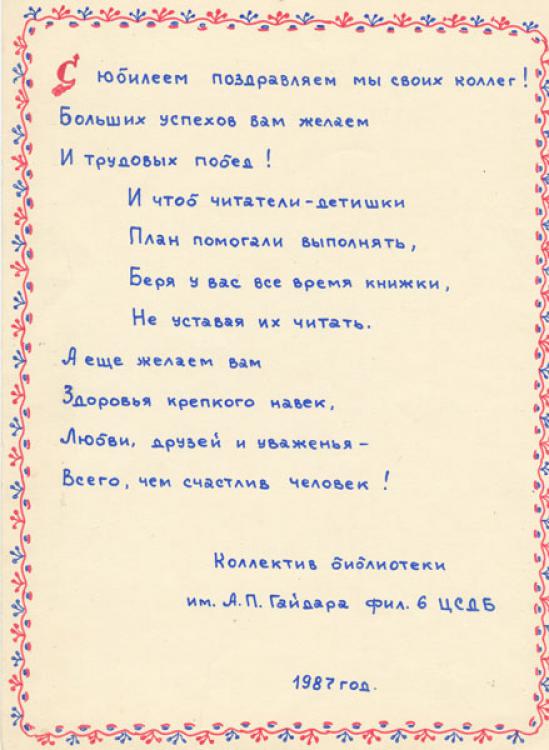 С юбилеем поздравляем мы своих коллег!
Больших успехов вам желаем
И трудовых побед!
И чтоб читатели-детишки
План помогали выполнять,
Беря у вас все время книжки,
Не уставая их читать.
А еще желаем вам
Здоровья крепкого навек,
Любви, друзей и уваженья-
Всего, чем счастлив человек!
Коллектив библиотеки
им. А.П. Гайдара фил. 6 ЦСДБ
1987 год.